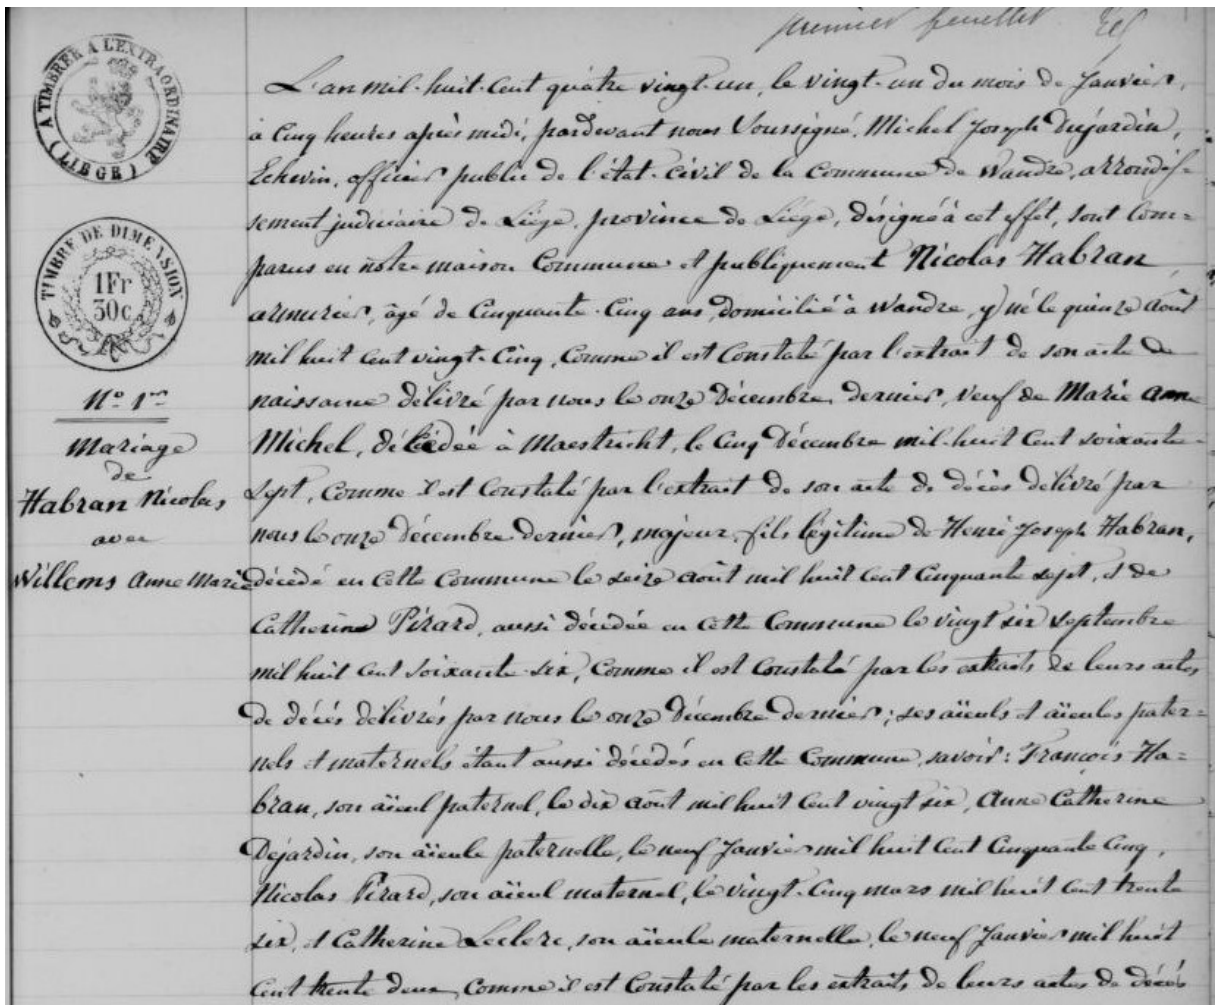 premier feuillet
A TIMBRER A L'EXTRAORDINAIRE
(LIEGE)
TIMBRE DE DIMENSION
1Fr
30c
N° 1er
Mariage
de
Habran Nicolas
avec
Willems Anne Marie
L'an mil-huit-cent quatre vingt-un, le vingt-un du mois de Janvier,
à cinq heures après midi, pardevant nous Soussigné, Michel Joseph Dujardin,
Echevin, officier public de l'état-civil de la Commune de Wandre, arrondis=
sement judiciaire de Liége, province de Liége, désigné à cet effet, sont com=
parus en notre maison Commune et publiquement Nicolas Habran
armurier, âgé de Cinquante-Cinq ans, domicilié à Wandre, y né le quinze Août
mil huit cent vingt-Cinq, Comme il est Constaté par l'extrait de son acte de
naissance délivré par nous le onze Décembre dernier, veuf de Marie Anne
Michel, décédée à Maestricht, le Cinq Décembre mil-huit Cent soixante-
sept, Comme il est Constaté par l'extrait de son acte de décès délivré par
nous le onze Décembre dernier, majeur, fils légitime de Henri Joseph Habran,
décédé en Cette Commune le seize Août mil huit cent Cinquante sept, et de
Catherine Pirard, aussi décédée en Cette Commune le vingt six Septembre
mil huit Cent Soixante-six, Comme il est Constaté par les extraits de leurs actes
de décès délivrés par nous le onze Décembre dernier; ses aïeuls et aïeules pater=
nels et maternels étant aussi décédés en Cette Commune, savoir: François Ha=
bran, son aïeul paternel, le dix Août mil huit Cent vingt six, Anne Catherine
Dejardin, son aïeule paternelle, le neuf Janvier mil huit Cent Cinquante Cinq,
Nicolas Pirard, son aïeul maternel, le vingt-Cinq mars mil huit cent trente
six, et Catherine Leclerc, son aïeule maternelle, le neuf Janvier mil huit
Cent trente deux, Comme il est Constaté par les extraits de leurs actes de décès